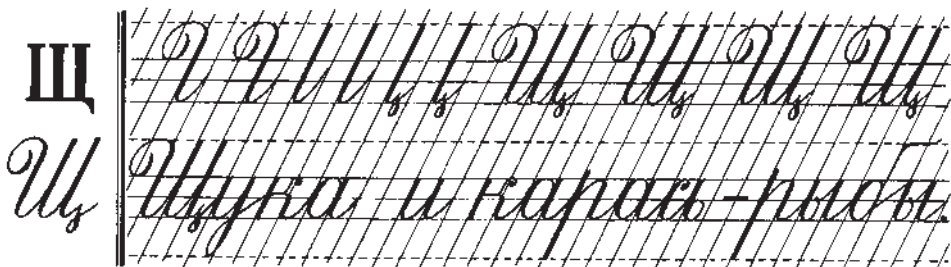 Щ Щ Щ Щ Щ
Щ Щука и караси - рыбы.